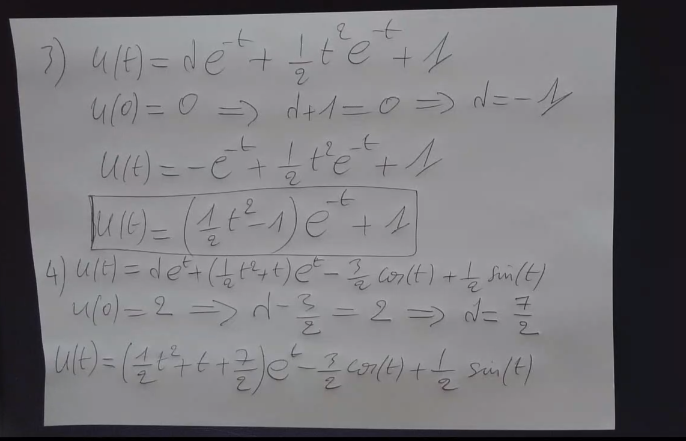 3) u(t) = de^{-t} + \frac{1}{2} t^2 e^{-t} + 1
u(0) = 0 => d+1 = 0 => d = -1
u(t) = -e^{-t} + \frac{1}{2} t^2 e^{-t} + 1
u(t) = (\frac{1}{2} t^2 - 1) e^{-t} + 1
4) u(t) = de^t + (\frac{1}{2} t^2 + t) e^t - \frac{3}{2} cos(t) + \frac{1}{2} sin(t)
u(0) = 2 => d - \frac{3}{2} = 2 => d = \frac{7}{2}
u(t) = (\frac{1}{2} t^2 + t + \frac{7}{2}) e^t - \frac{3}{2} cos(t) + \frac{1}{2} sin(t)